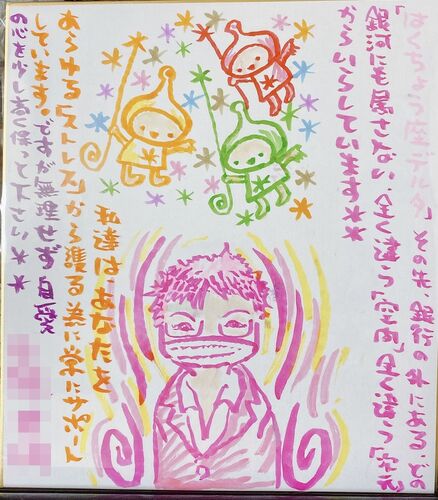 「はくちょう座デルタ」その先、銀行の外にある、どの
銀河にも属さない、全く違う「空間」全く違う「次元」
からいらしています**
私達は、あなたを
あらゆる「ストレス」から護る為に常にサポート
しています。ですが無理せず自愛
の心を少し高く保って下さい**